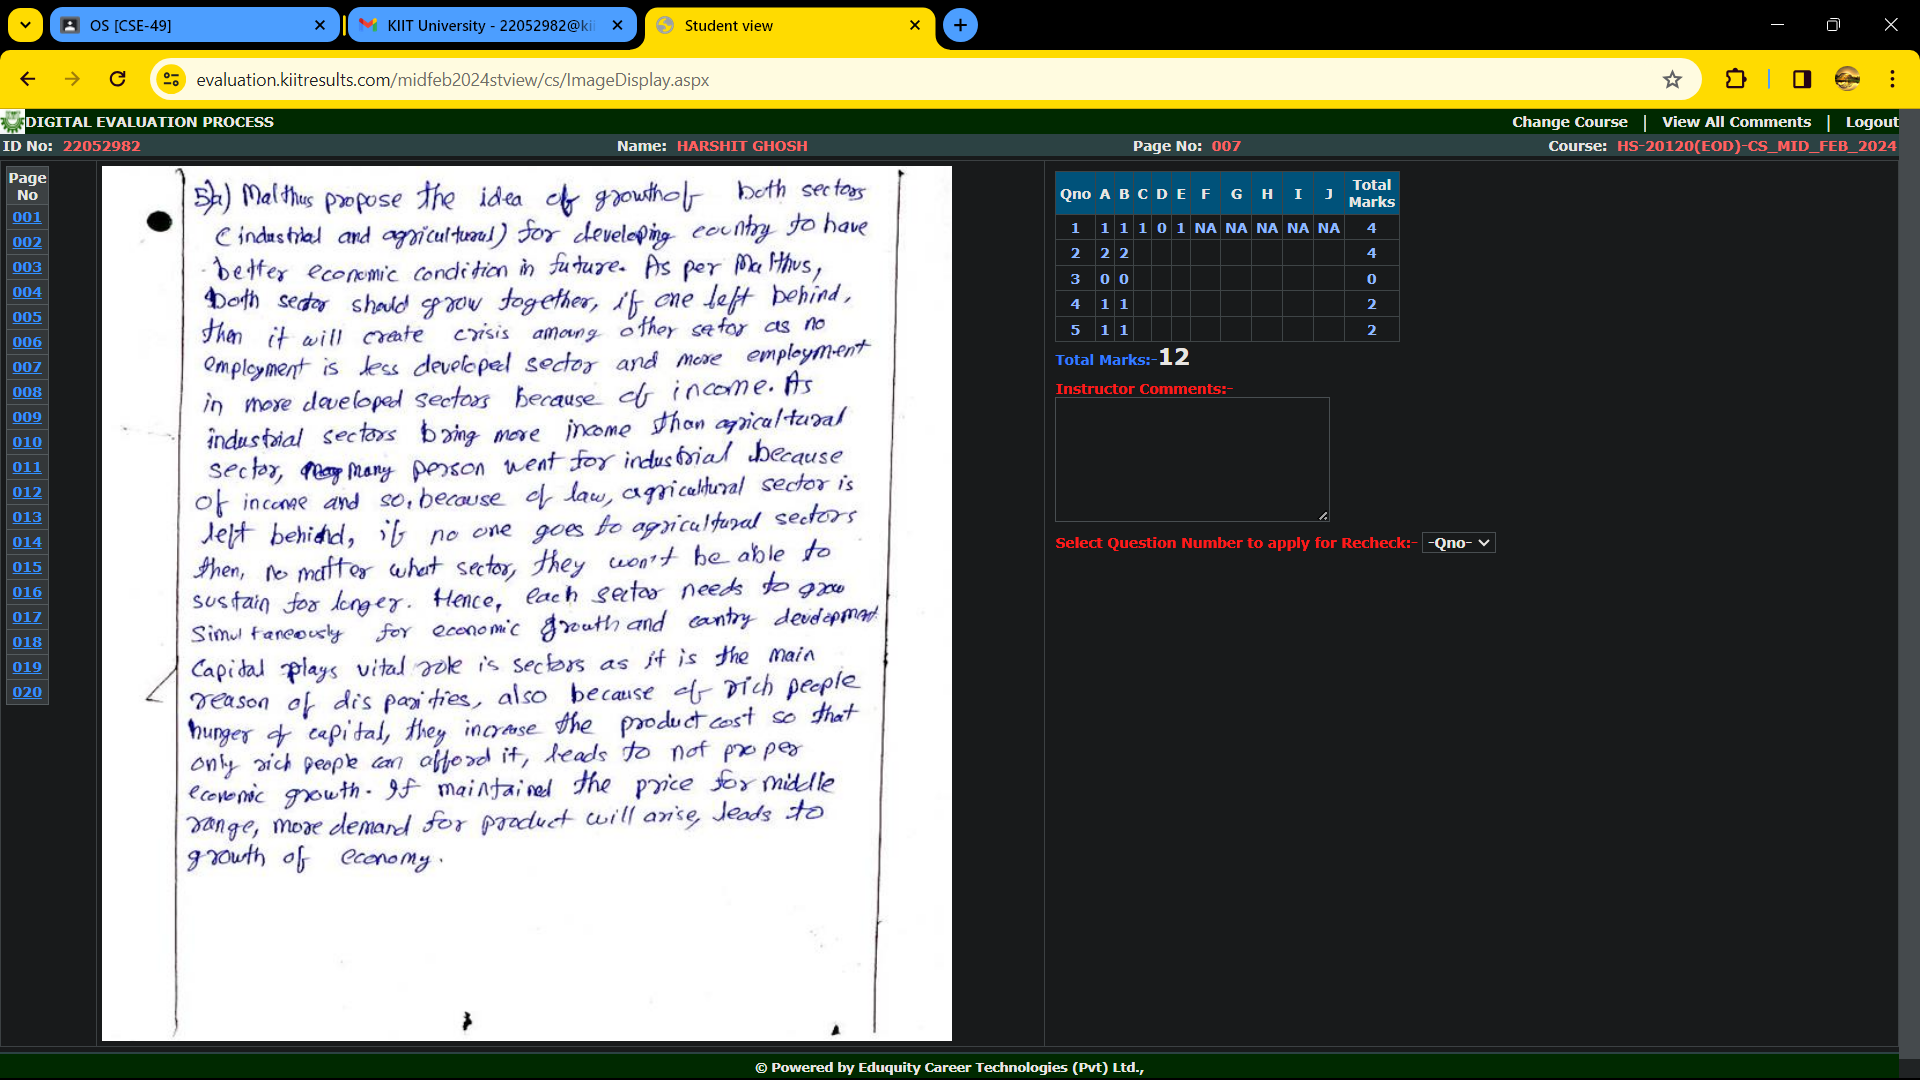 OS [CSE-49]
KIIT University - 22052982@kii
Student view
evaluation.kiitresults.com/midfeb2024stview/cs/ImageDisplay.aspx
DIGITAL EVALUATION PROCESS
Change Course | View All Comments | Logout
ID No: 22052982 Name: HARSHIT GHOSH Page No: 007 Course: HS-20120(EOD)-CS_MID_FEB_2024
Page No
001
002
003
004
005
006
007
008
009
010
011
012
013
014
015
016
017
018
019
020
5)a) Malthus propose the idea of growth of both sectors
(industrial and agricultural) for developing country to have
better economic condition in future. As per Malthus,
both sector should grow together, if one left behind,
then it will create crisis among other setor as no
employment is less developed sector and more employment
in more developed sectors because of income. As
industrial sectors bring more income than agricultural
sector, many person went for industrial because
of income and so, because of law, agricultural sector is
left behind, if no one goes to agricultural sectors
then, no matter what sector, they won't be able to
sustain for longer. Hence, each sector needs to grow
simultaneously for economic growth and cantry development.
Capital plays vital role is sectors as it is the main
reason of disparities, also because of rich people
hunger of capital, they increase the product cost so that
only rich people can afford it, leads to not proper
economic growth. If maintained the price for middle
range, more demand for product will arise, leads to
growth of economy.
Qno A B C D E F G H I J Total Marks
1 1 1 1 0 1 NA NA NA NA NA 4
2 2 2 4
3 0 0 0
4 1 1 2
5 1 1 2
Total Marks:-12
Instructor Comments:-
Select Question Number to apply for Recheck:- -Qno-
© Powered by Eduquity Career Technologies (Pvt) Ltd.,